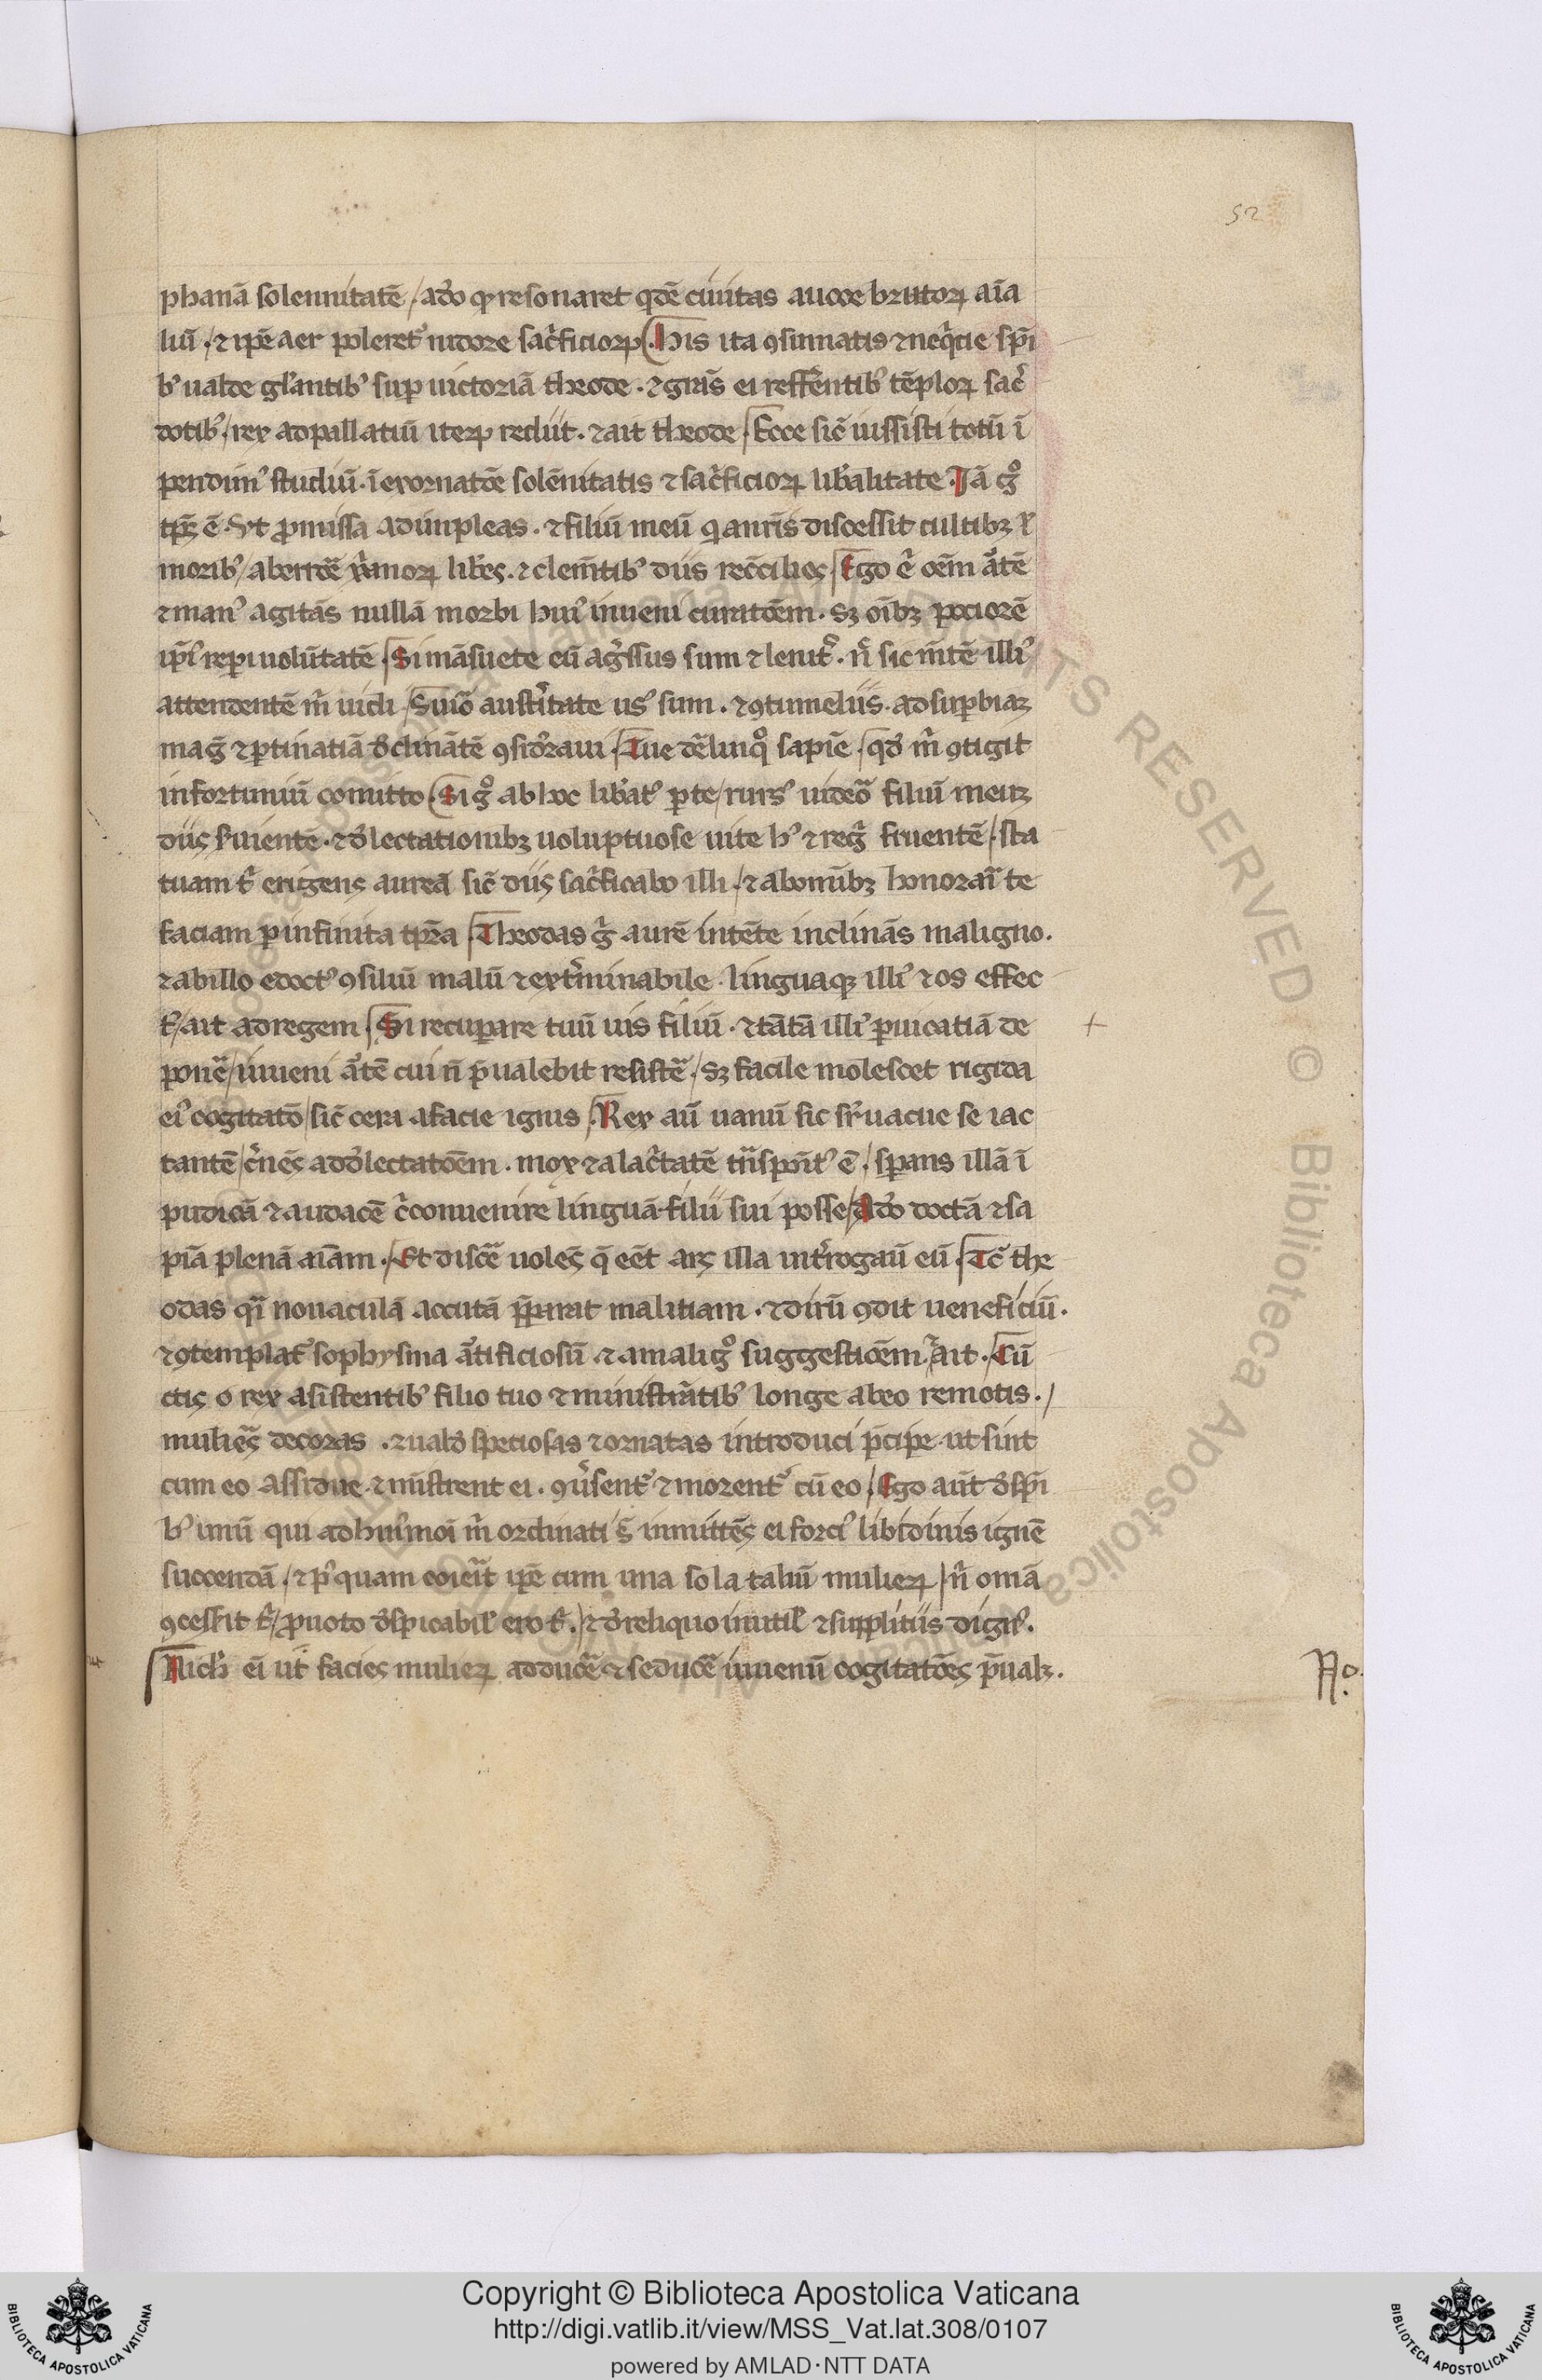 52
phanā solennitatē / adō qͥ resonaret qdē ciuitas auoce brutoꝝ aīa
liū / ⁊ ipē aer polleretᷣ nidore sacͥficioꝝ His ita ꝯsūmatis ⁊ neqͥcie spīri
bꝰ ualde gͣlantibꝰ suꝑ uictoriā theode . ⁊ grās ei refferentibꝰ tēploꝝ sacͥ
dotibꝰ / rex ad pallatiū iteꝝ rediit . ⁊ ait theode Ecce sic̄ iussisti totū ī
pendimꝰ studiū . ī exornatōe solēnitatis ⁊ sacͥficioꝝ libalitate Iā gͦ
tps̄ ē . Vt ꝓmissa adimpleas . ⁊ filiū meū q̇ anrīs discessit cultibꝫ
moribꝰ / liberes . ⁊ clemētibꝰ diis recc̄ilies Ego oēm āͬtē
⁊ manꝰ agitās nullā morbi huiꝰ inueni curatōem . sꝫ oībꝫ pociorē
ip̄iꝰ repi uolūtatē Si māsuete eū agͥssus sum ⁊ leniṫ . n̄ sic mētē illiꝰ
attendentē mͥ uidi Siuͦ austͥitate usꝰ sum . ⁊ ꝯtumeliis . ad suꝑbiaꝫ
mag̃ ⁊ ꝑtinatiā dͤclinātē ꝯsidͤraui Tue dē linqͦ sapiē / qdͤ mͥ ꝯtigit
infortuniū comitto Si gͦ ab hoc libatꝰ ꝑ te / rursꝰ uideō filiū meuꝫ
diis ẜuientē . ⁊ dͤlectationibꝫ uoluptuose uite hꝰ ⁊ regͥ fruentē / sta
tuam tͥ erigens aureā sic̄ diis sacͥficabo illi / ⁊ ab omībꝫ honoraī te
faciam ꝑ infinita tp̄ra Theodas gͥ aurē intēte inclinās maligno .
⁊ ab illo edoctꝰ ꝯsiliū malū ⁊ extͥminabile . linguaqꝫ illiꝰ ⁊ os effec
tꝰ / ait ad regem Si recuꝑare tuū uis filiū . ⁊ tātā illiꝰ ꝑuicatiā de
ponē / inueni āͬtē cui n̄ p̄ualebit resistē / sꝫ facile molescet rigida
eiꝰ cogitatō / sic̄ cera a facie ignis Rex aū uanū sic suꝑuacue se iac
tantē / cͥnēs ad dͤlectatōem . mox ⁊ alacͥtatē tn̄spōitꝰ ē / sꝑans illā ī
pudicā ⁊ audacē cͥconuenire linguā filii sui posse / Adō doctā ⁊ sa
piā plenā aīam . Et discē uolēs q̄ eēt ars illa intͥrogaū eū Tc̄ the
odas qͣī nouaculā accutā p̄parat malitiam . ⁊ dirū ꝯdit ueneficiū .
⁊ ꝯtemplatꝰ sophysma āͬtificiosū ⁊ a maligͦ suggestiōem / ait . Cū
ctis o rex asistentibꝰ filio tuo ⁊ ministrātibꝰ longe ab eo remotis . /
muliēs decoras . ⁊ ualdͤ speciosas ⁊ ornatas introduci p̄cipe . ut sint
cum eo assidue . ⁊ mīstrent ei . ꝯuͥsentꝰ ⁊ morentꝰ cū eo / Ego aūt dͤ spīri
bꝰ unū qui ad huiꝰmoi mͥ ordinati s̄ inmittēs ei forciꝰ libidinis ignē
succendā / ⁊ pꝰquam coierīt ip̄e cum una sola taliū mulieꝝ / n̄ omā
ꝯcessit tͥ / ꝓ uoto dͤspicabilꝰ ero tͥ / ⁊ dͤ reliquo inutilꝰ ⁊ suppliciis dignꝰ .
Nichͥ ei ut facies mulieꝝ adducē ⁊ seducē iuuenū cogitatōes p̄ualꝫ .
No.
Copyright © Biblioteca Apostolica Vaticana
http://digi.vatlib.it/view/MSS_Vat.lat.308/0107
powered by AMLAD·NTT DATA
BIBLIOTECA APOSTOLICA VATICANA
BIBLIOTECA APOSTOLICA VATICANA